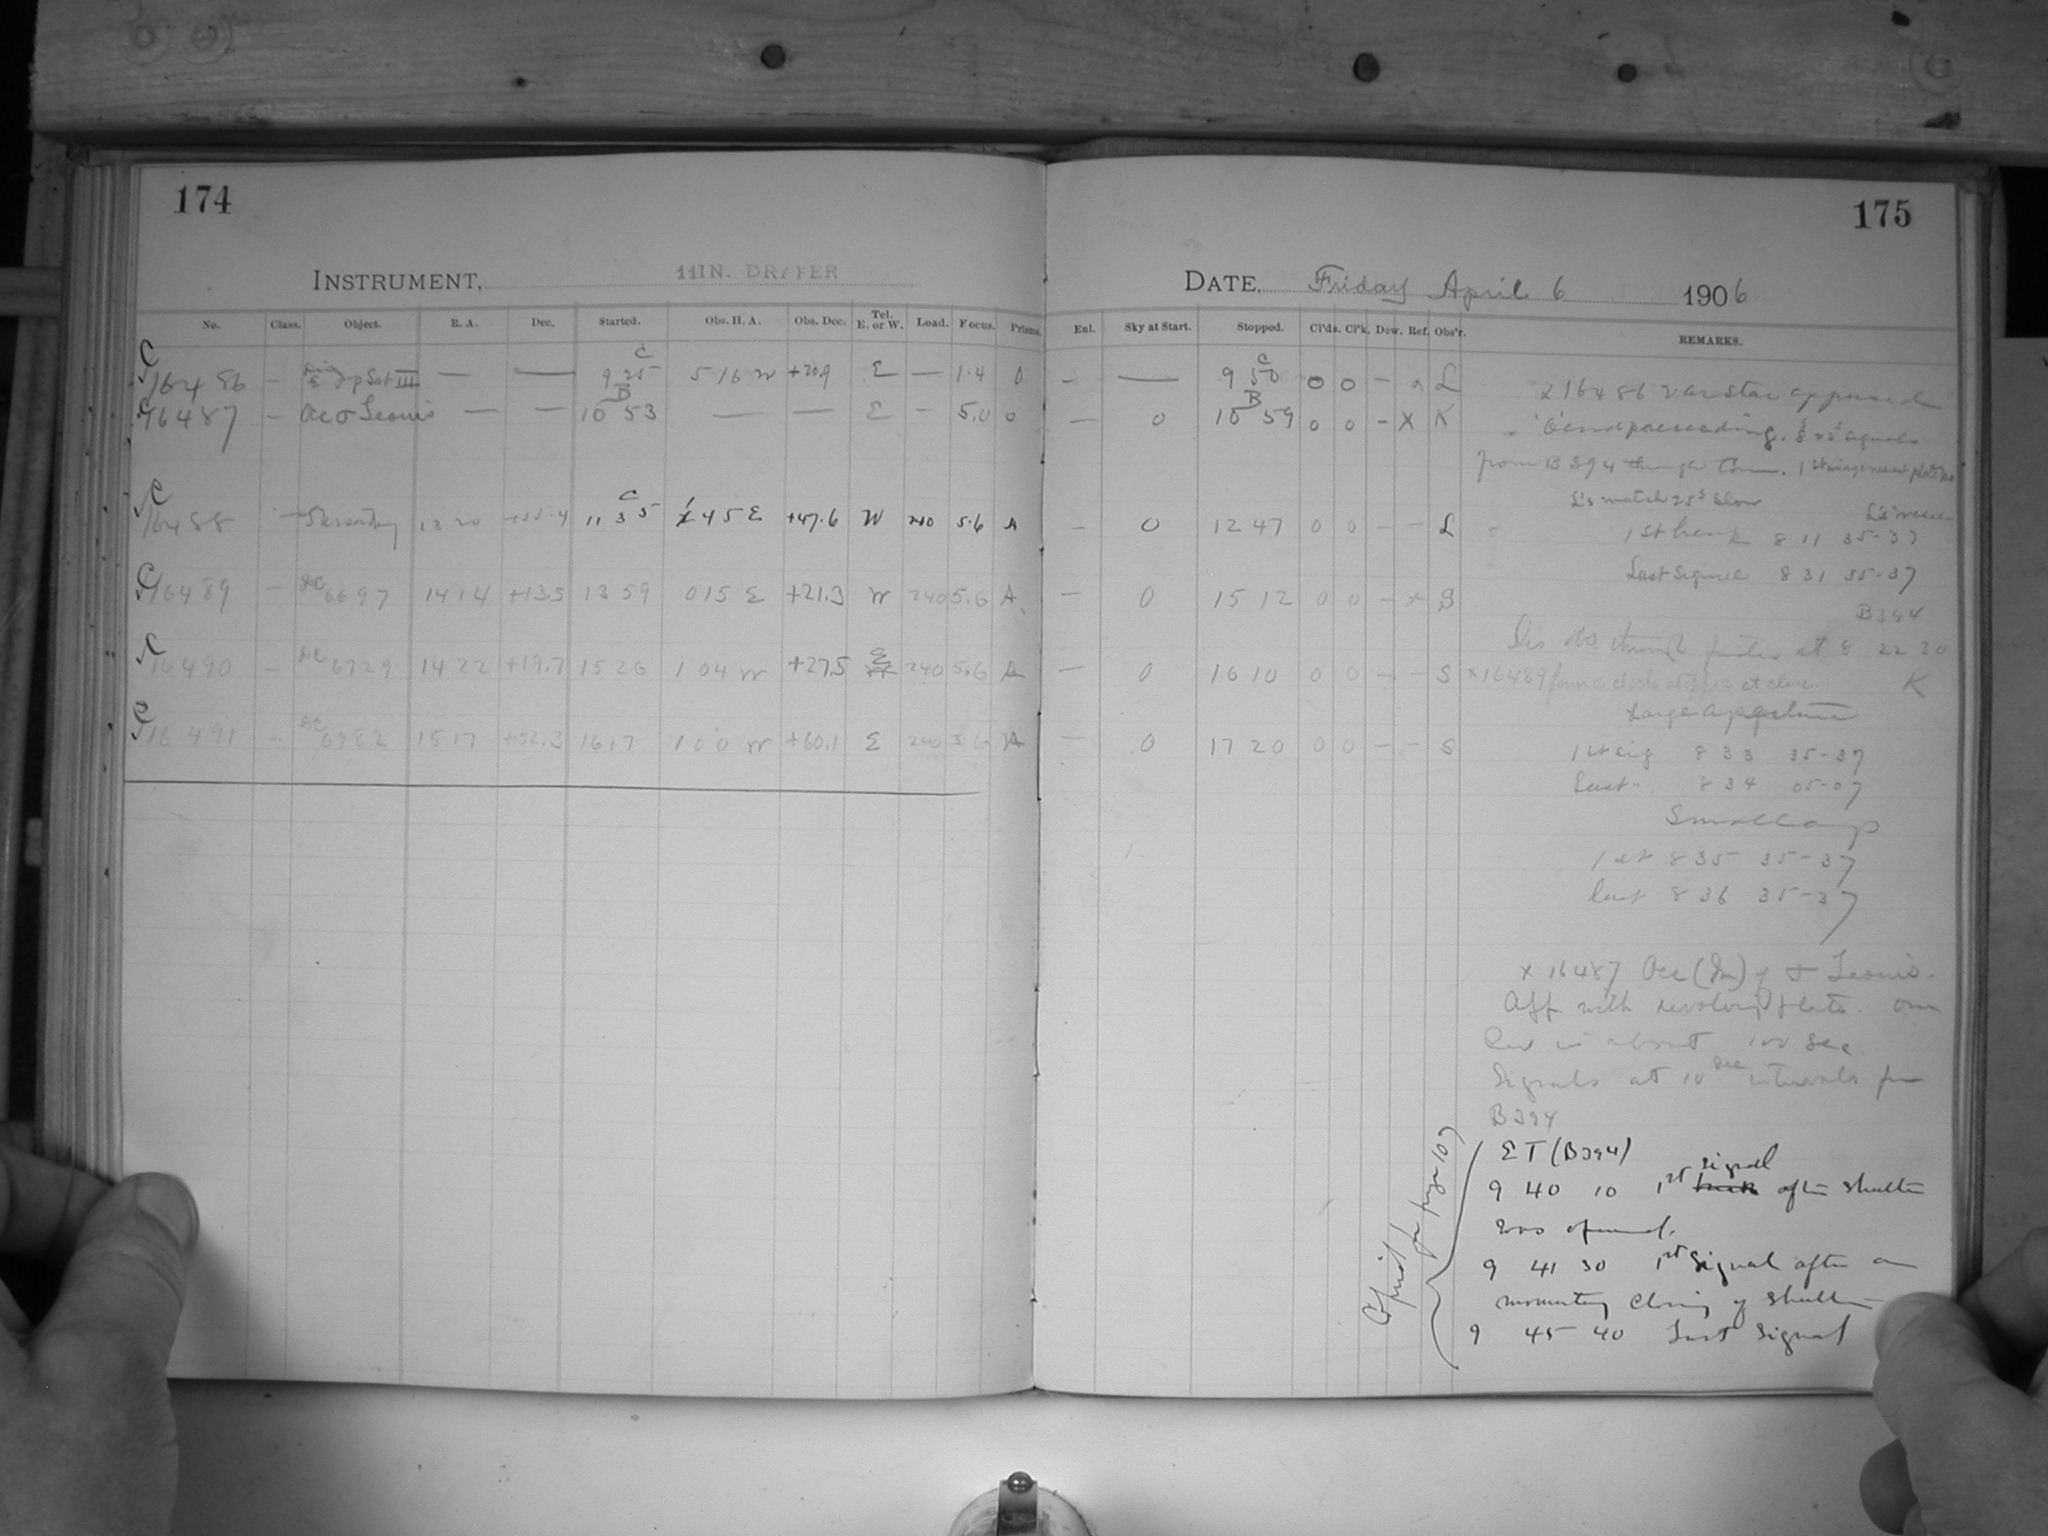 174
175
INSTRUMENT, 11IN. DRAPER
DATE, Friday April 6 1906
No. Class. Object. R. A. Dec. Started. Obs. H. A. Obs. Dec. Tel. E. or W. Load. Focus. Prisms. Enl. Sky at Start. Stopped. Cl'ds. Cl'k. Dew. Ref. Obs'r. REMARKS.
C 16486 — Jup Sat III — — C 9 25 5 16 W +20.9 E — 1.4 0 — — C 9 50 0 0 — L
C 16487 — Occ σ Leonis — — B 10 53 — — E — 5.0 0 — 0 B 10 59 0 0 — X K
C 16488 — 13 20 +55.4 C 11 35 1 45 E +47.6 W 240 5.6 A — 0 12 47 0 0 — — L
C 16489 — DC 6697 14 14 +13.5 13 59 0 15 E +21.3 W 240 5.6 A — 0 15 12 0 0 — S
C 16490 — DC 6729 14 22 +19.7 15 26 1 04 W +27.5 E 240 5.6 A — 0 16 10 0 0 — — S
C 16491 — DC 6982 15 17 +52.3 16 17 1 00 W +60.1 E 240 5.6 A — 0 17 20 0 0 — — S
x 16486 var star
from B394
L's watch 25s slow
1st break 8 11 35-37
Last signal 8 31 35-37
B394
at 8 22 30
x16489 found clock at close.
K
Large aperture
1st sig 8 33 35-37
Last " 8 34 05-07
Small ap
1st 8 35 35-37
last 8 36 35-37
x 16487 Occ (Im) of σ Leonis.
App. with revolving plate. One
Rev in about 100 sec.
Signals at 10 sec intervals from
B394
ET (B394)
9 40 10 1st signal after shutter
was opened.
9 41 30 1st signal after a
momentary closing of shutter
9 45 40 Last signal
Copied for page 107